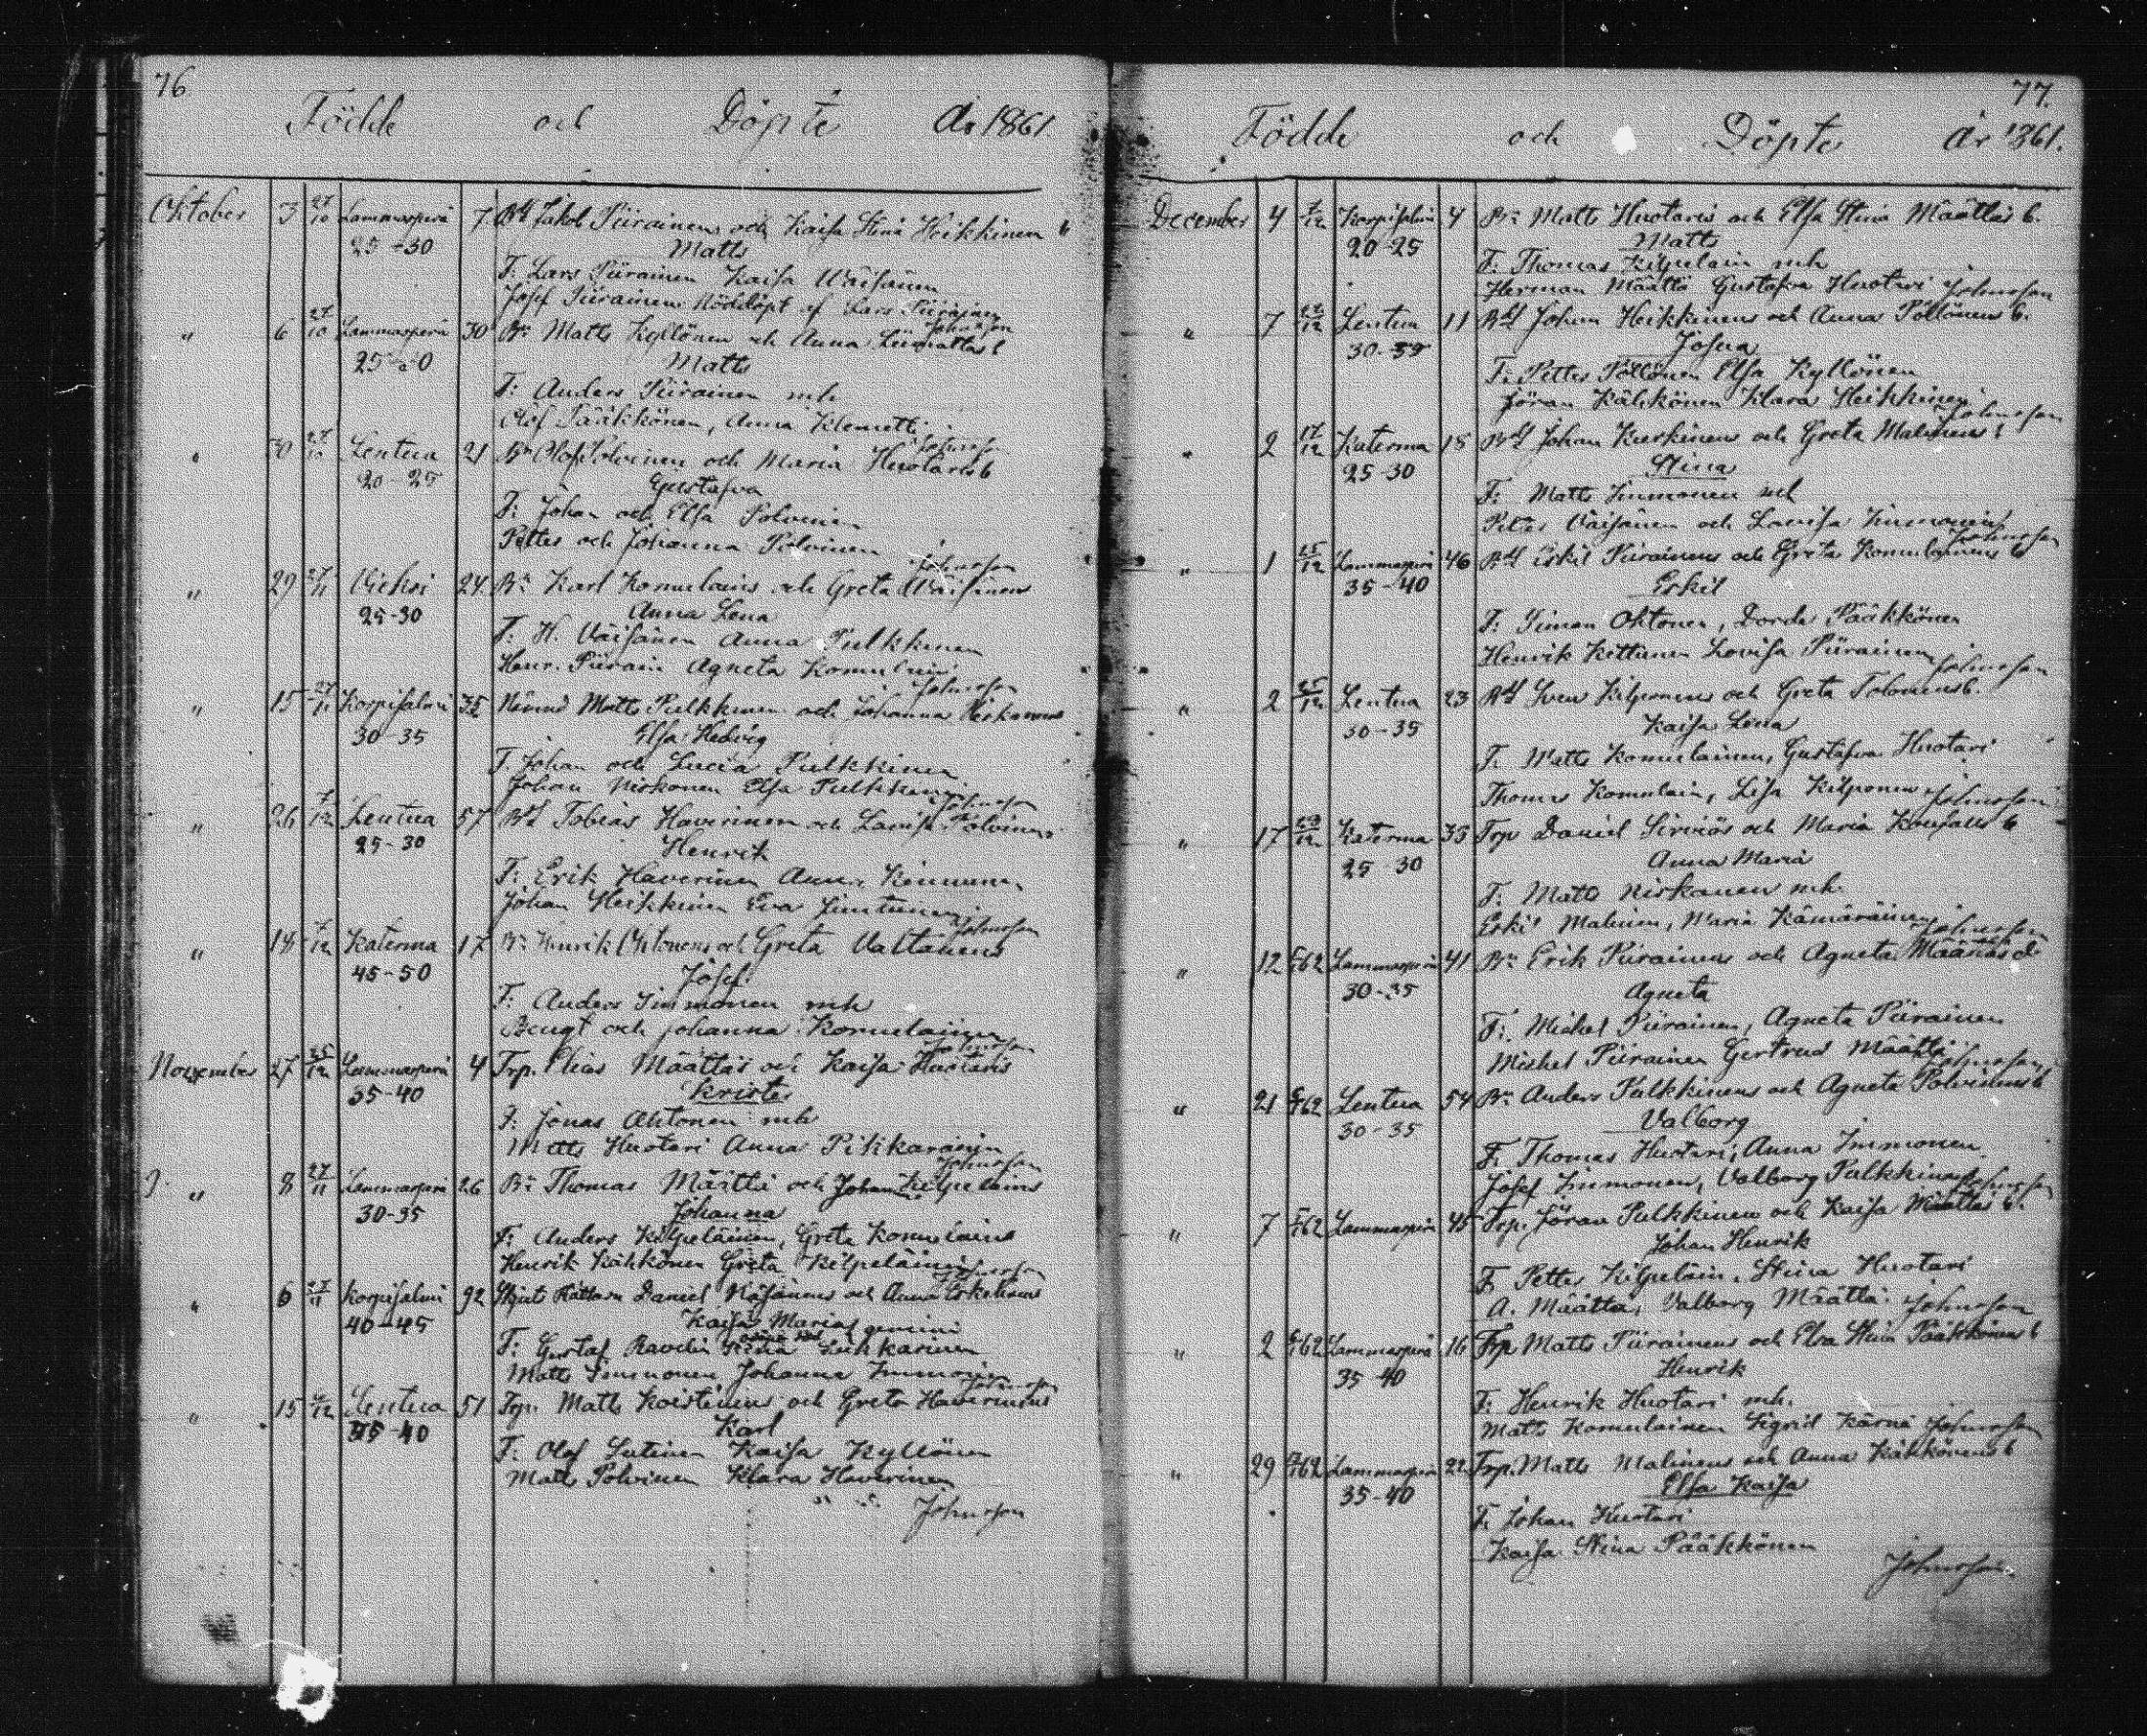 76
Födde och Döpte År 1861
Oktober 3 27/10 Lammasperä 7 Bd Jakob Piirainens och Kaisa Stina Heikkinen
25-30 Matts
F: Lars Piirainen Kaisa Wäisänen
Josef Piirainen Nöddöpt af Lars Piirainen
Johnsson
" 6 27/10 Lammasperä 30 Bn Matts Kyllönen och Anna
Matts
F: Anders Piirainen mh
Olof Pääkkönen, Anna Klemetti
Johnsson
" 30 Lentua 21 Bn Olof Polvinen och Maria Huotaris b
20-25 Gustafva
F: Johan och Elsa Polvinen
Petter och Johanna Polvinen
Johnsson
" 29 Vieksi 24 Bn Karl Komulains och Greta Wäisänens
25-30 Anna Lena
F: H. Väisänen Anna Pulkkinen
Henr. Piirain Agneta Komulain
Johnsson
" 15 Korpisalmi 35 Matts Pulkkinen och Johanna Niskanens
30-35 Elsa Hedvig
F. Johan och Lucia Pulkkinen
Johan Niskanen Elsa Pulkkinen
Johnsson
" 26 7/12 Lentua 57 Bd Tobias Haverinen och Lovisa Polvinens
25-30 Henrik
F: Erik Haverinen Anna Kinnunen
Johan Heikkinen Eva Juntunen
Johnsson
" 18 7/12 Katerma 17 Bn Henrik Ohtonens och Greta Valtanens
45-50 Josef
F: Anders Immonen mh
Bengt och Johanna Komulainen
Johnsson
November 27 25/12 Lammasperä 4 Trp. Elias Määttäs och Kaisa Huotaris
35-40 Krister
F: Jonas Ahtonen mh
Matts Huotari Anna Pikkarainen
Johnsson
" 8 27/11 Lammasperä 26 Bn Thomas Määttä och Johan Kilpeläins
30-35 Johanna
F: Anders Kilpeläinen, Greta Komulains
Henrik Kähkönen Greta Kilpeläinen
Johnsson
" 6 27/11 Korpisalmi 92 Daniel Väisänens och Anna
40-45 Kaisa Maria gemini
F: Gustaf Ravelin Stina Luhkarinen
Matts Immonen Johanna Immonen
Johnsson
" 15 Lentua 51 Trp. Matts Koistinens och Greta Haverinens
35-40 Karl
F: Olof Lutinen Kaisa Kyllönen
Matts Polvinen Klara Haverinen
Johnsson
77.
Födde och Döpte år 1861.
December 4 7/12 Korpisalmi 4 Bn Matts Huotaris och Elsa Stina Määttäs b.
20-25 Matts
F: Thomas Kilpeläin mh
Herman Määttä Gustafva Huotari Johnsson
" 7 22/12 Lentua 11 Bd Johan Heikkinens och Anna Pöllönens b.
30-35 Josua
F: Petter Pöllönen Elsa Kyllönen
Jöran Kähkönen Klara Heikkinen
Johnsson
" 2 17/12 Katerma 18 Bd Johan Kurkinens och Greta Malinens b
25-30 Stina
F: Matts Immonen mh
Petter Väisänen och Lovisa Immonen
Johnsson
" 1 25/12 Lammasperä 46 Bd Eskil Piirainens och Greta Komulainens b
35-40 Eskil
F: Simon Ohtonen, Dorde Pääkkönen
Henrik Kettunen Lovisa Piirainen
Johnsson
" 2 25/12 Lentua 23 Bd Sven Kilponens och Greta Tolonens b.
30-35 Kaisa Lena
F. Matts Komulainen, Gustafva Huotari
Thomas Komulain, Lisa Kilponen Johnsson
" 17 29/12 Katerma 33 Trp Daniel Sirviös och Maria b
25-30 Anna Maria
F. Matts Niskanen mh.
Eskil Malinen, Maria Kämäräinen
Johnsson
" 12 62 Lammasperä 41 Bn Erik Piirainens och Agneta Määttäs d
30-35 Agneta
F: Mickel Piirainen, Agneta Piirainen
Mickel Piirainen Gertrud Määttä
Johnsson
" 21 62 Lentua 54 Bn Anders Pulkkinens och Agneta Polvinens b
30-35 Valborg
F. Thomas Huotari, Anna Immonen
Josef Immonen, Valborg Pulkkinen Johnsson
" 7 62 Lammasperä 45 Trp. Jöran Pulkkinen och Kaisa Määttäs b.
Johan Henrik
F. Petter Kilpeläin, Stina Huotari
A. Määttä, Valborg Määttä. Johnsson
" 2 62 Lammasperä 16 Trp Matts Piirainens och Elsa Stina Pääkkönens b
35-40 Henrik
F: Henrik Huotari mh.
Matts Komulainen Sigrid Kärnä Johnsson
" 29 62 Lammasperä 22 Trp. Matts Malinens och Anna Kähkönens b
35-40 Elsa Kaisa
F. Johan Huotari
Kaisa Stina Pääkkönen
Johnsson